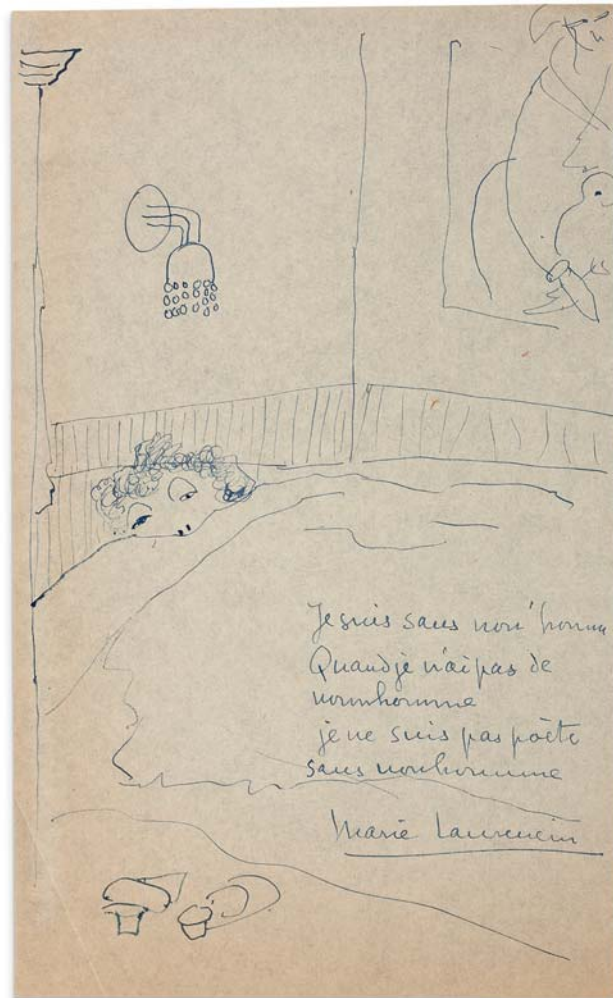 Je suis sans
Quand je n'ai pas de
nounhomme
je ne suis pas poète
sans nounhomme
Marie Laurencin